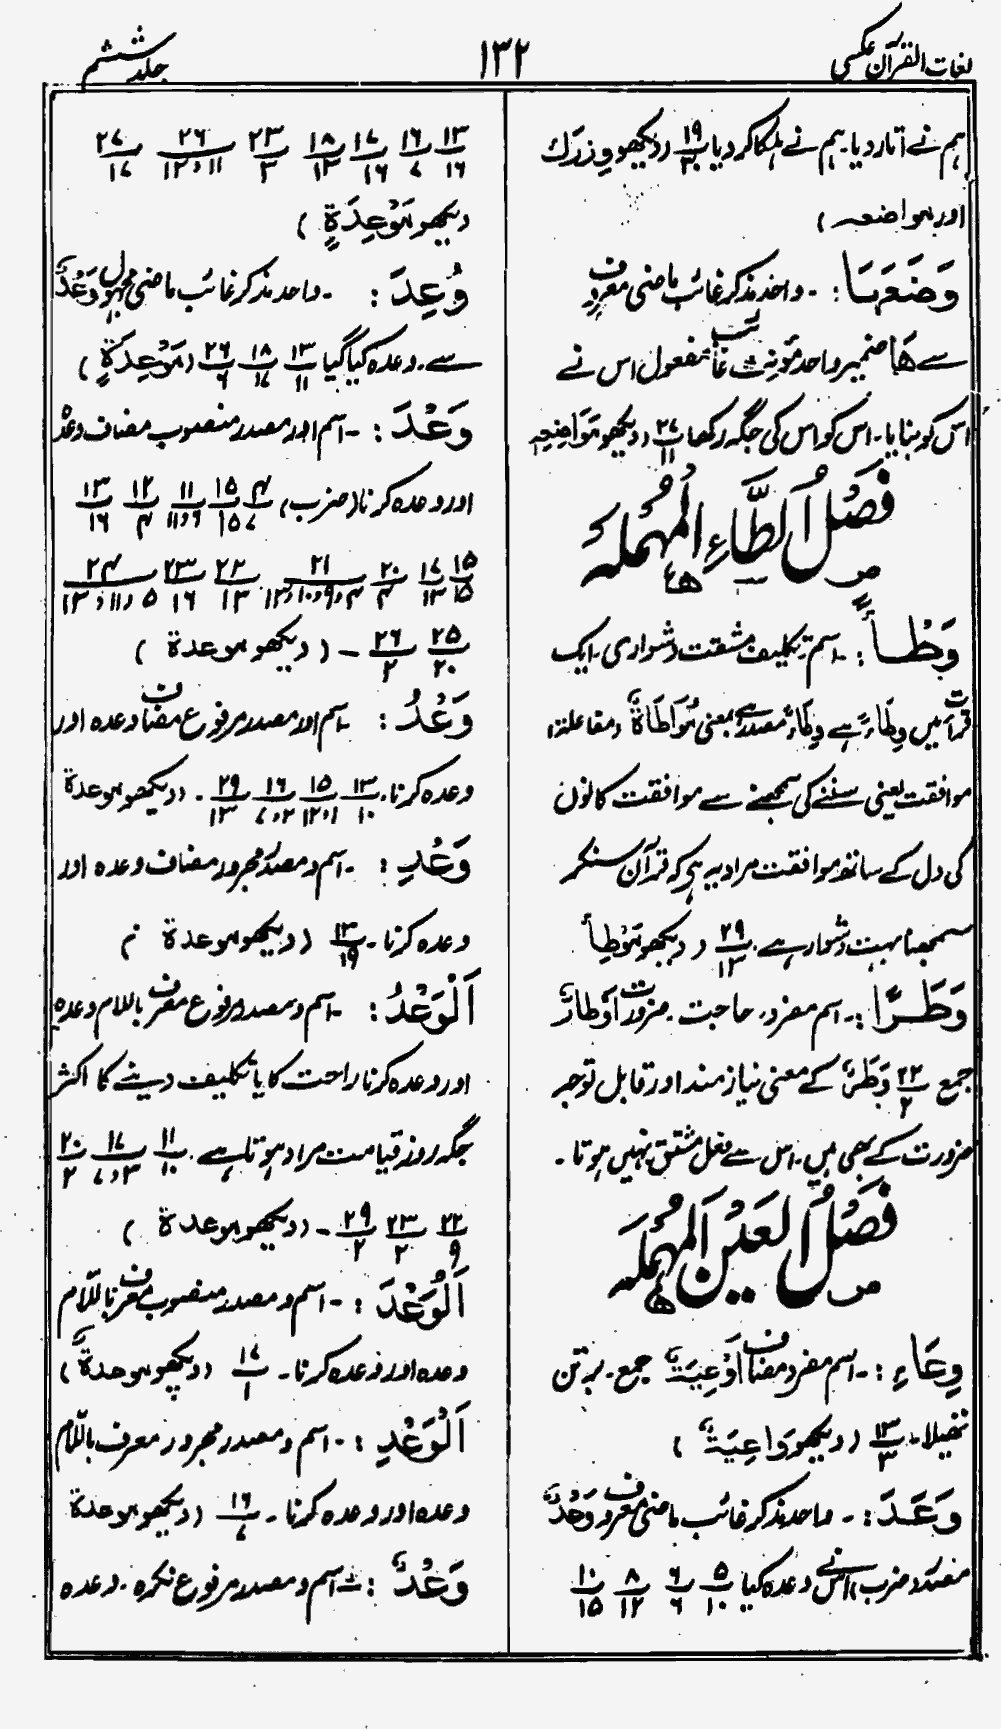 لغات القرآن عکسی
۱۳۲
جلد ششم
ہم نے اتار دیا۔ ہم نے ہلکا کر دیا ۱۹/۳۰ (دیکھو وِزرَكَ
اور مواضعہ)
وَضَعَهَا :۔ واحد مذکر غائب ماضی معروف
سے هَا ضمیر واحد مؤنث غائب مفعول اس نے
اس کو بنایا۔ اس کو اس کی جگہ رکھا ۲۷/۱۱ (دیکھو مَوَاضِعِہ
فَصْلُ الطَّاءِ الْمُهْمَلَه
وَطْأً :۔ اسم تکلیف مشقت دشواری۔ ایک
قرأت میں وِطَاءً ہے وِطَاءً مصدر ہے بمعنی مُوَاطَاةٌ (مفاعلۃ)
موافقت یعنی سننے کی سمجھنے سے موافقت کانوں
کی دل کے ساتھ موافقت مراد یہ ہے کہ قرآن سنکر
سمجھنا بہت دشوار ہے۔ ۲۹/۱۳ (دیکھو مَوْطِأً
وَطَرًا :۔ اسم مفرد۔ حاجت۔ ضرورت أَوْطَارٌ
جمع ۲۲/۲ وَطَرٌ کے معنی نیاز مند اور قابل توجہ
ضرورت کے بھی ہیں۔ اس سے فعل مشتق نہیں ہوتا۔
فَصْلُ الْعَيْنِ الْمُهْمَلَه
وِعَاءِ :۔ اسم مفرد مضاف أَوْعِيَةٌ جمع۔ برتن
تھیلا۔ ۱۳/۳ (دیکھو وَاعِيَةٌ)
وَعَدَ :۔ واحد مذکر غائب ماضی معروف وَعْدٌ
مصدر (ضرب) اس نے وعدہ کیا ۵/۱۰ ۶/۶ ۸/۱۲ ۱۰/۱۵
۱۳/۱۶ ۱۶/۷ ۱۷/۱۶ ۱۸/۱۳ ۲۳/۳ ۲۶/۱۱،۱۲ ۲۷/۱۷
دیکھو مَوْعِدَةٍ)
وُعِدَ :۔ واحد مذکر غائب ماضی مجہول وَعْدٌ
سے۔ وعدہ کیا گیا ۱۳/۱۱ ۱۸/۱۷ ۲۶/۶ (مَوْعِدَةٍ)
وَعْدَ :۔ اسم اور مصدر منصوب مضاف وعدہ
اور وعدہ کرنا (ضرب) ۴/۷ ۱۵/۱۵ ۱۱/۶،۱۱ ۱۲/۴ ۱۳/۱۶
۱۵/۱۵ ۱۷/۱۳ ۲۰/۴ ۲۱/۴،۹،۱۰،۱۲ ۲۲/۱۳ ۲۳/۱۶ ۲۴/۵،۱۱،۱۳
۲۵/۲۰ ۲۶/۲ ۔ (دیکھو موعدة)
وَعْدُ :۔ اسم اور مصدر مرفوع مضاف وعدہ اور
وعدہ کرنا۔ ۱۳/۱۰ ۱۵/۱،۱۲ ۱۶/۲،۷ ۲۹/۱۳ ۔ (دیکھو موعدة
وَعْدِ :۔ اسم و مصدر مجرور مضاف وعدہ اور
وعدہ کرنا۔ ۱۳/۱۹ (دیکھو موعدة م
اَلْوَعْدُ :۔ اسم و مصدر مرفوع معرف باللام وعدہ
اور وعدہ کرنا راحت کا یا تکلیف دینے کا اکثر
جگہ روز قیامت مراد ہوتا ہے۔ ۱۱/۱۰ ۱۷/۳،۷ ۲۰/۲
۲۲/۹ ۲۳/۲ ۲۹/۲ ۔ (دیکھو موعدة)
اَلْوَعْدَ :۔ اسم و مصدر منصوب معرف باللّام
وعدہ اور وعدہ کرنا۔ ۱۷/۱ (دیکھو موعدةٌ)
اَلْوَعْدِ :۔ اسم و مصدر مجرور معرف باللّام
وعدہ اور وعدہ کرنا۔ ۱۶/۷ (دیکھو موعدة
وَعْدٌ :۔ اسم و مصدر مرفوع نکرہ۔ وعدہ